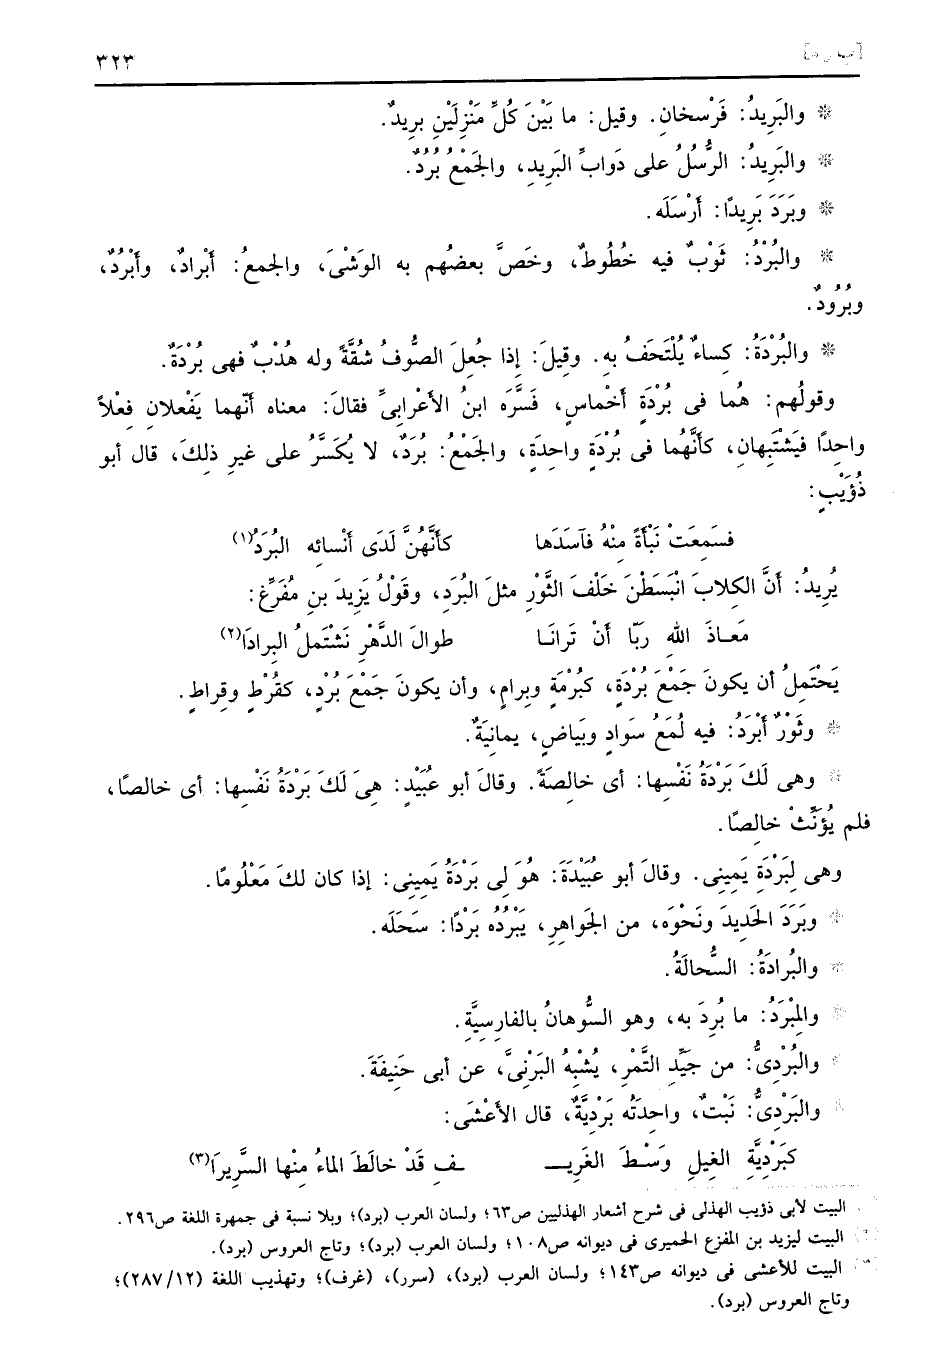 [ب ر د] ٣٢٣
* والبَرِيدُ: فَرْسخانِ. وقيل: ما بَيْنَ كُلِّ مَنْزِلَيْنِ بريدٌ.
* والبَرِيدُ: الرُّسُلُ على دَوابِّ البَرِيدِ، والجَمْعُ بُرُدٌ.
* وبَرَدَ بَرِيدًا: أَرْسَلَه.
* والبُرْدُ: ثَوْبٌ فيه خُطُوطٌ، وخَصَّ بعضُهم به الوَشْىَ، والجمعُ: أَبْرادٌ، وأَبْرُدٌ،
وبُرُودٌ.
* والبُرْدَةُ: كساءٌ يُلْتَحَفُ بهِ. وقيلَ: إذا جُعِلَ الصُّوفُ شُقَّةً وله هُدْبٌ فهى بُرْدَةٌ.
وقولُهم: هُما فى بُرْدَةِ أخْماسٍ، فَسَّرَه ابنُ الأَعْرابِىِّ فقالَ: معناه أنّهما يَفْعلانِ فِعْلاً
واحِدًا فَيَشْتَبِهانِ، كأَنَّهُما فى بُرْدَةٍ واحِدَةٍ، والجَمْعُ: بُرَدٌ، لا يُكَسَّرُ على غيرِ ذلِكَ، قال أبو
ذُؤَيْبٍ:
فسَمِعَتْ نَبْأَةً مِنْهُ فآسَدَها كأَنَّهُنَّ لَدَى أَنْسائِهِ البُرَدُ(١)
يُرِيدُ: أَنَّ الكِلابَ انْبَسَطْنَ خَلْفَ الثَّوْرِ مثلَ البُرَدِ، وقَوْلُ يَزِيدَ بنِ مُفَرِّغٍ:
مَعـاذَ اللهِ رَبّا أَنْ تَرانَـا طوالَ الدَّهْرِ نَشْتَملُ البِرادَا(٢)
يَحْتَمِلُ أن يكونَ جَمْعَ بُرْدَةٍ، كبُرْمَةٍ وبِرامٍ، وأن يكونَ جَمْعَ بُرْدٍ، كقُرْطٍ وقِراطٍ.
* وثَوْرٌ أَبْرَدُ: فيه لُمَعُ سَوادٍ وبَياضٍ، يمانِيَةٌ.
* وهى لَكَ بَرْدَةُ نَفْسِها: أى خالِصَةً. وقالَ أبو عُبَيْدٍ: هِىَ لَكَ بَرْدَةُ نَفْسِها: أى خالصًا،
فلم يُؤَنِّثْ خالِصًا.
وهى لِبَرْدَةِ يَمِينِى. وقالَ أبو عُبَيْدَةَ: هُوَ لِى بَرْدَةُ يَمِينِى: إذا كان لكَ مَعْلُومًا.
* وبَرَدَ الحَدِيدَ ونَحْوَه، من الجَواهِرِ، يَبْرُدُه بَرْدًا: سَحَلَه.
* والبُرادَةُ: السُّحالَةُ.
* والمِبْرَدُ: ما بُرِدَ به، وهو السُّوهانُ بالفارِسِيَّةِ.
* والبُرْدِىُّ: من جَيِّدِ التَّمْرِ، يُشْبِهُ البَرْنِىَّ، عن أبى حَنِيفَةَ.
* والبَرْدِىُّ: نَبْتٌ، واحِدَتُه بَرْدِيَّةٌ، قال الأَعْشَى:
كبَرْدِيَّةِ الغِيلِ وَسْـطَ الغَرِيـ ـفِ قَدْ خالَطَ الماءُ مِنْها السَّرِيرَا(٣)
البيت لأبى ذؤيب الهذلى فى شرح أشعار الهذليين ص٦٣؛ ولسان العرب (برد)؛ وبلا نسبة فى جمهرة اللغة ص٢٩٦.
البيت ليزيد بن المفزع الحميرى فى ديوانه ص١٠٨؛ ولسان العرب (برد)؛ وتاج العروس (برد).
البيت للأعشى فى ديوانه ص١٤٣؛ ولسان العرب (برد)، (سرر)، (غرف)؛ وتهذيب اللغة (٢٨٧/١٢)؛
وتاج العروس (برد).